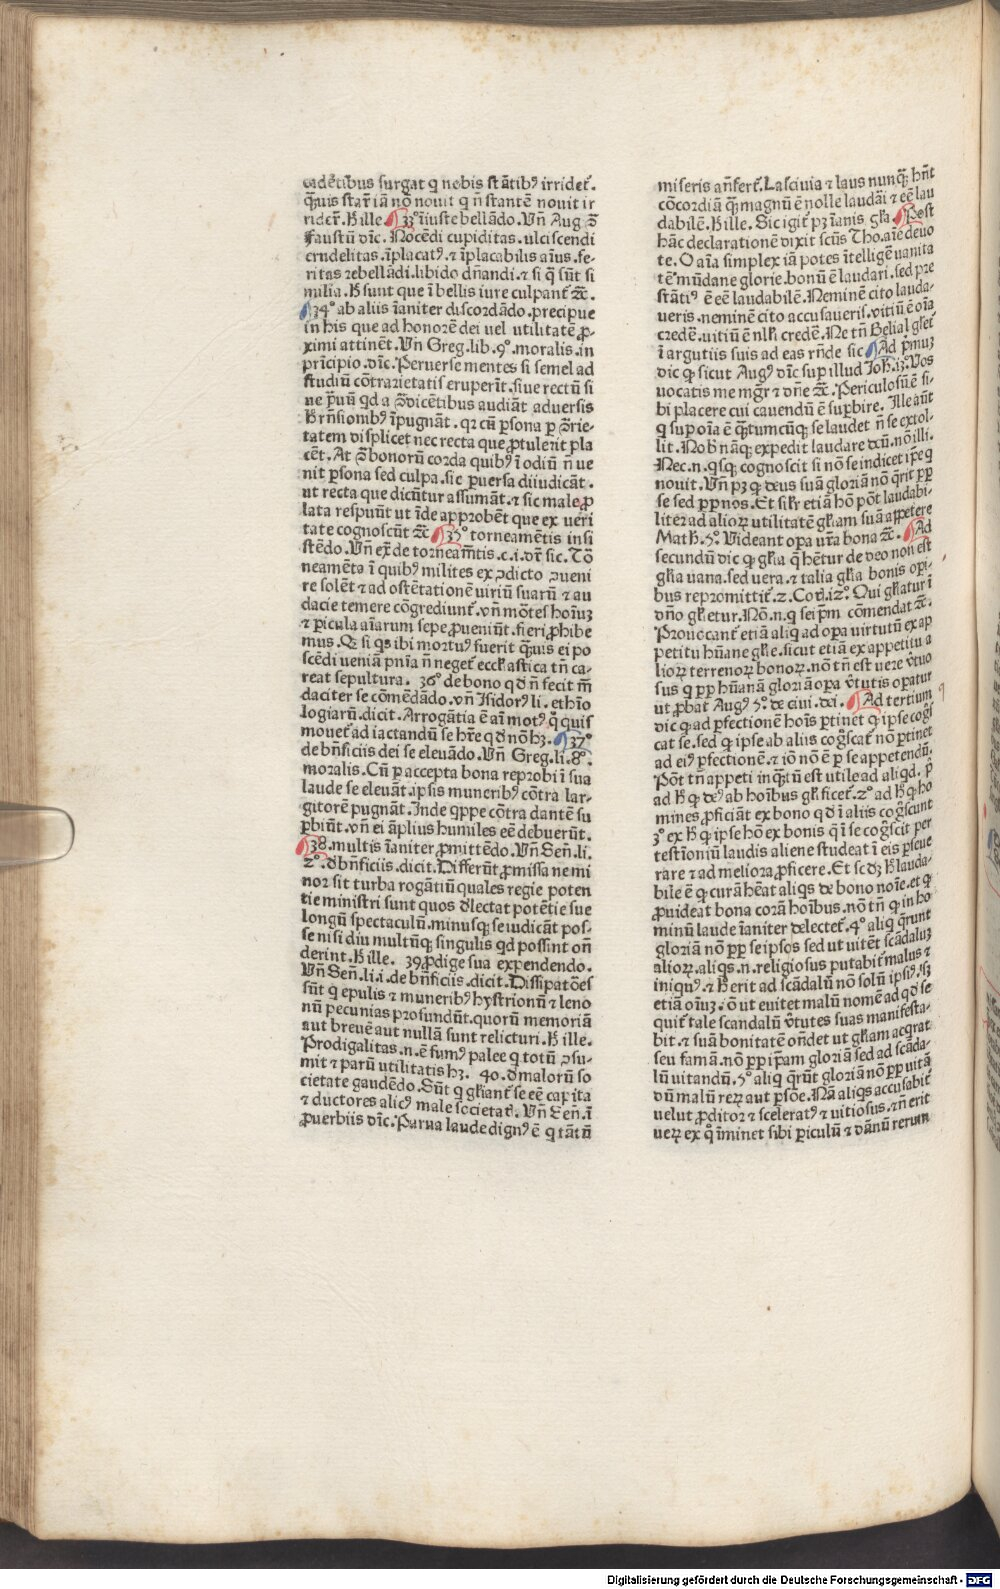 cadētibus surgat q nobis stātibꝰ irridet᷑.
q̄uis star̄ iā nō nouit q n̄ stantē nouit ir
rider̄. H̄ ille. ¶33° īiuste bellādo. Vn̄ Aug ꝯ̄
Faustū dīc. Nocēdi cupiditas. ulciscendi
crudelitas. īplacatꝰ. ⁊ īplacabilis aīus. fe⸗
ritas rebellādi. libido dn̄andi. ⁊ si q̄ sūt si
milia. H̄ sunt que ī bellis iure culpant᷑ ⁊c̄.
¶34° ab aliis īaniter discordādo. precipue
in his que ad honorē dei uel utilitatē ꝓ⸗
ximi attinēt. Vn̄ Greg. lib. 9°. moralis. in
prīcipio. dīc. Peruerse mentes si semel ad
studiū cōtrarietatis eruperīt. siue rectū si
ue p̄uū qd a ꝯ̄dicētibus audiāt aduersis
H̄ rn̄sionibꝰ īpugnāt. qꝛ cū ꝑsona ꝑ ꝯ̄rie⸗
tatem displicet nec recta que ꝓtulerit pla
cēt. At ꝯ̄ bonorū corda quibꝰ ī odiū n̄ ue
nit ꝑsona sed culpa. sic ꝑuersa diiudicāt.
ut recta que dicūtur assumāt. ⁊ sic male ꝓ
lata respuūt ut īde approbēt que ex ueri
tate cognoscūt ⁊c̄ ¶35° torneamētis insi
stēdo. Vn̄ ex̄ de torneam̄tis. c. i. dr̄ sic. To
neamēta ī quibꝰ milites ex ꝯdicto ꝯueni
re solēt ⁊ ad ostētationē uiriū suarū ⁊ au
dacie temere cōgrediunt᷑. vn̄ mōtes hoīuꝫ
⁊ ꝑicula aīarum sepe ꝓueniūt. fieri ꝓhibe
mus. Qꝫ si qs ibi mortuꝰ fuerit q̄uis ei po
scēdi ueniā pnīa n̄ neget᷑ eccl̄iastica tn̄ ca⸗
reat sepultura. 36° de bono qd n̄ fecit m̄
daciter se cōmēdādo. vn̄ Isidorꝰ li. ethīo
logiarū. dicit. Arrogātia ē aī motꝰ. q̄ quis
mouet᷑ ad iactandū se hr̄e qd nō hꝫ. ¶37°
de bn̄ficiis dei se eleuādo. Vn̄ Greg. li. 8°.
moralis. Cū ꝑ accepta bona reprobi ī sua
laude se eleuāt. ipsis muneribꝰ cōtra lar⸗
gitorē pugnāt. Inde qppe cōtra dantē su
ꝑbiūt. vn̄ ei āplius humiles eē debuerūt.
¶38. multis īaniter ꝓmittēdo. Vn̄ Sen̄. li.
2°. d̄ bn̄ficiis. dicit. Differūt ꝓmissa ne mi
nor sit turba rogātiū quales regie poten
tie ministri sunt quos d̄lectat potētie sue
longū spectaculū. minusqꝫ se iudicāt pos⸗
se nisi diu multūqꝫ singulis qd possint on̄
derint. H̄ ille. 39 ꝓdige sua expendendo.
Vn̄ Sen̄. li. i. de bn̄ficiis. dicit. Dissipatōes
sūt q epulis ⁊ muneribꝰ hystrionū ⁊ leno
nū pecunias profundūt. quorū memoriā
aut breuē aut nullā sunt relicturi. H̄ ille.
Prodigalitas. n. ē fumꝰ palee q totū ꝯsu⸗
mit ⁊ parū utilitatis hꝫ. 40. d̄ malorū so
cietate gaudēdo. Sūt q gl̄iant᷑ se eē capita
⁊ ductores alicꝰ male societat̄. Vn̄ Sen̄. ī
ꝓuerbiis dīc. Parua laude dignꝰ ē q tātū
miseris an̄fert᷑. Lasciuia ⁊ laus nunq̄ꝫ hn̄t
cōcordiā q̄ꝫ magnū ē nolle laudāi ⁊ eē lau
dabilē. H̄ ille. Sic igit᷑ pꝫ īanis gl̄ia. ¶Post
hāc declarationē dixit scūs Tho. aīe deuo
te. O aīa simplex iā potes ītelligē uanita
tē mūdane glorie. bonū ē laudari. sed pre
stātiꝰ ē eē laudabilē. Neminē cito lauda⸗
ueris. neminē cito accusaueris. vitiū ē oīa
credē. uitiū ē nl̄i credē. Ne tn̄ Belial gl̄iet᷑
ī argutiis suis ad eas rn̄de sic ¶Ad p̄muꝫ
dic ꝙ sicut Augꝰ dīc sup illud Joh̄. 13°. Vos
uocatis me mgr̄ ⁊ dn̄e ⁊c̄. Periculosū ē si⸗
bi placere cui cauendū ē suꝑbire. Ille aūt
q sup oīa ē q̄tumcūqꝫ se laudet n̄ se extol⸗
lit. Nob̄ nāqꝫ expedit laudare dēū. nō illi.
Nec. n. qsqꝫ cognoscit si nō se indicet ip̄e q
nouit. Vn̄ pꝫ ꝙ deus suā gloriā nō q̄rit ꝓp
se sed ꝓp nos. Et sil̄r etiā hō pōt laudabi⸗
liter ad alioꝝ utilitatē gl̄iam suā appetere
Math̄. 5°. Videant oꝑa ur̄a bona ⁊c̄. ¶Ad
secundū dic ꝙ gl̄ia q̄ hētur de deo non est
gl̄ia uana. sed uera. ⁊ talia gl̄ia bonis oꝑi⸗
bus repromittit᷑. 2. Cor̄. 12°. Qui gl̄iatur ī
dn̄o gl̄ietur. Nō. n. q seip̄m cōmendat ⁊c̄.
Prouocant᷑ etiā aliq ad oꝑa uirtutū ex ap
petitu hūane gl̄ie. sicut etiā ex appetitu a
lioꝝ terrenoꝝ bonoꝝ. nō tn̄ est uere v̄tuo
sus q ꝓp hūanā gloriā oꝑa v̄tutis oꝑatur
ut ꝓbat Augꝰ 5°. de ciui. dei. ¶Ad tertium
dic ꝙ ad ꝑfectionē hoīs ꝑtinet ꝙ ipse cogs̄
cat se. sed ꝙ ipse ab aliis cogs̄cat᷑ nō ꝑtinet
ad eiꝰ ꝑfectionē. ⁊ iō nō ē ꝑ se appetendū.
Pōt tn̄ appeti inq̄tū est utile ad aliqd. p̄
ad H̄ ꝙ deꝰ ab hoībus gl̄ificet᷑. 2° ad H̄ ꝙ ho
mines ꝓficiāt ex bono qd ī aliis cogs̄cunt
3° ex H̄ ꝙ ipse hō ex bonis q̄ ī se cogs̄cit per
testīoniū laudis aliene studeat ī eis ꝑseue
rare ⁊ ad meliora ꝓficere. Et scdꝫ H̄ lauda⸗
bile ē ꝙ curā hēat aliqs de bono noīe. et ꝙ
ꝓuideat bona corā hoībus. nō tn̄ ꝙ in ho
minū laude īaniter delectet᷑. 4° aliq q̄runt
gloriā nō ꝓp seipsos sed ut uitēt scādaluꝫ
alioꝝ. aliqs. n. religiosus putabit᷑ malus ⁊
iniquꝰ. ⁊ H̄ erit ad scādalū nō solū ipsiꝰ. sꝫ
etiā oīuꝫ. ō ut euitet malū nomē ad qd se
quit᷑ tale scandalū v̄tutes suas manifesta⸗
bit. ⁊ suā bonitatē on̄det ut gl̄iam acqrat
seu famā. nō ꝓp ip̄am gloriā sed ad scāda⸗
lū uitandū. 5° aliq q̄rūt gloriā nō ꝓp uitā
dū malū reꝝ aut ꝑsōe. Nā aliqs accusabit᷑
uelut ꝓditor ⁊ sceleratꝰ ⁊ uitiosus. ⁊ n̄ erit
ueꝝ ex q̊ īminet sibi ꝑiculū ⁊ dānū rerum
Digitalisierung gefördert durch die Deutsche Forschungsgemeinschaft - DFG